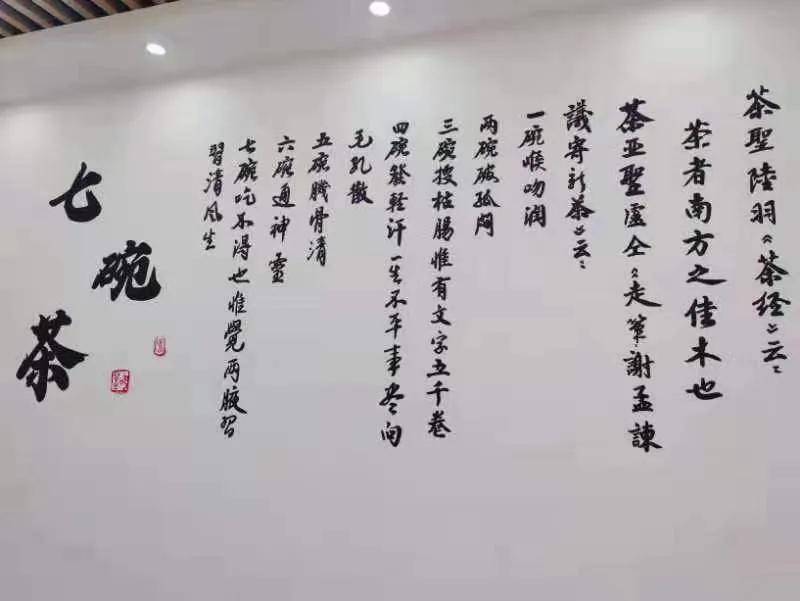 茶聖陸羽《茶经》云：
茶者南方之佳木也
茶亚聖盧仝《走筆謝孟諫
議寄新茶》云：
一碗喉吻润
两碗破孤闷
三碗搜枯肠惟有文字五千卷
四碗發輕汗一生不平事尽向
毛孔散
五碗肌骨清
六碗通神靈
七碗吃不得也惟覺两腋習
習清风生
七碗茶